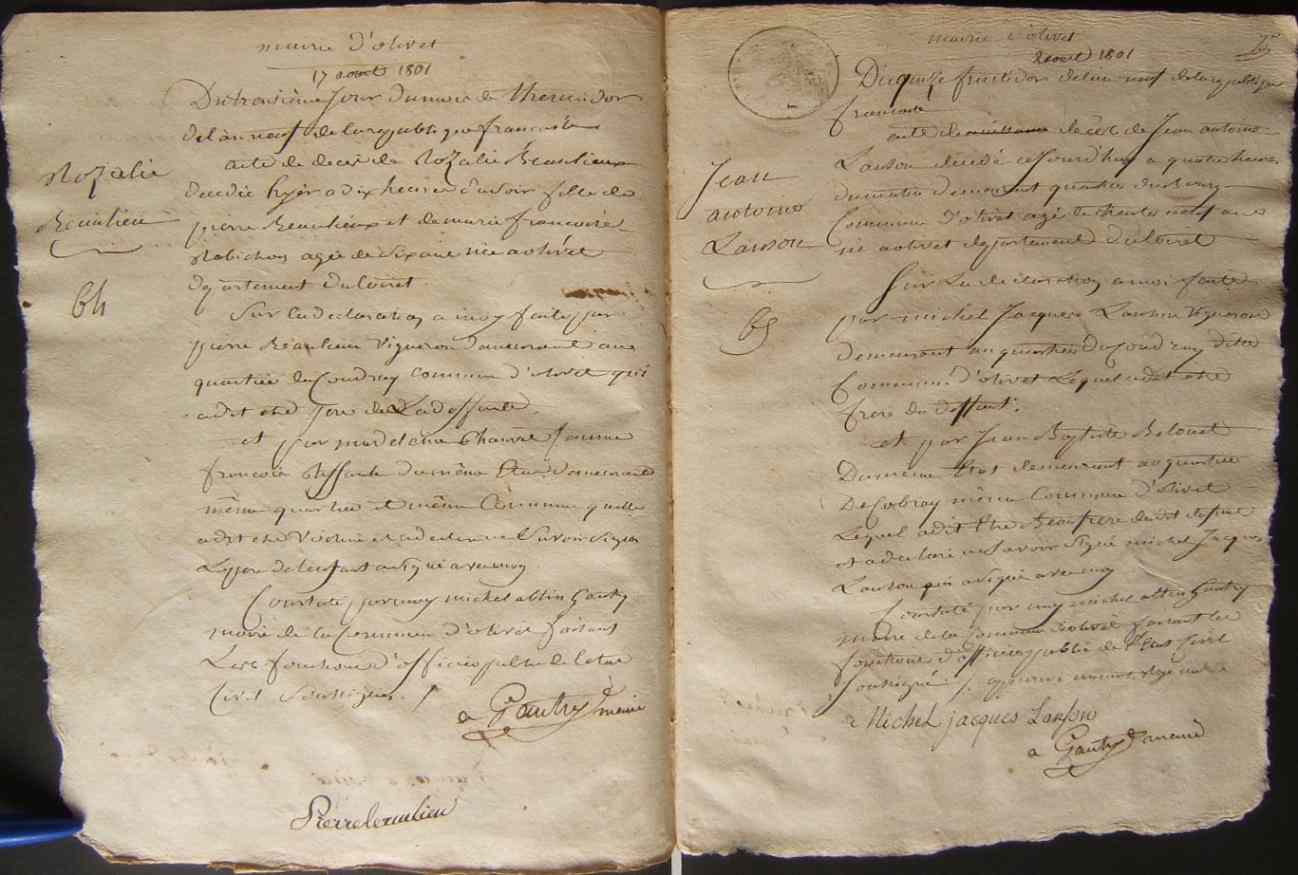 mairie d'olivet
17 aout 1801
Du troisième jour du mois de thermidor
de l'an neuf de la republique francaise
acte de deces de Rozalie Beaulieux
decedée hyer a dix heures du soir fille de
pierre Beaulieux et de marie francoise
Robichon agée de six ans née a olivet
departement du loiret
Rozalie
Beaulieu
64
Sur la declaration a moy faite par
pierre Beaulieux Vigneron demeurant au
quartier du Coudray commune d'olivet qui
a dit etre pere de La deffunte
et par madelaine femme
francois du même Etat demeurante
même quartier et même Commune quelle
a dit etre Voisine et a declaré ne Savoir Signer
Le pere de lenfant a signé avec moy
Constaté par moy michel albin Gautry
maire de la Commune d'olivet faisant
Les fonctions d'officier public de letat
Civil Soussigné
a Gautry maire
Pierre beaulieu
mairie d'olivet
aout 1801
Du quinze fructidor de lan neuf de la republique
francaise
acte de deces de Jean antoine
Lanson decedé ce jourd'huy a quatre heures
du matin demeurant quartier du Bourg
Commune d'olivet agé de trente neuf ans
né a olivet departement du loiret
Jean
antoine
Lanson
65
Sur La declaration a moi faite
par michel Jacques Lanson Vigneron
demeurant au quartier du Coudray dite
Commune d'olivet Lequel a dit etre
frere du deffunt
et par Jean Baptiste
Du même Etat demeurant au quartier
De même Commune d'olivet
Lequel a dit etre Beaufrere dudit defunt
et a declaré ne Savoir Signé michel Jacques
Lanson qui a Signé avec moy
Constaté par moy michel albin Gautry
maire de la Commune d'olivet faisant les
fonctions d'officier public de l'Etat Civil
Soussigné
Michel jacques Lanson
a Gautry maire